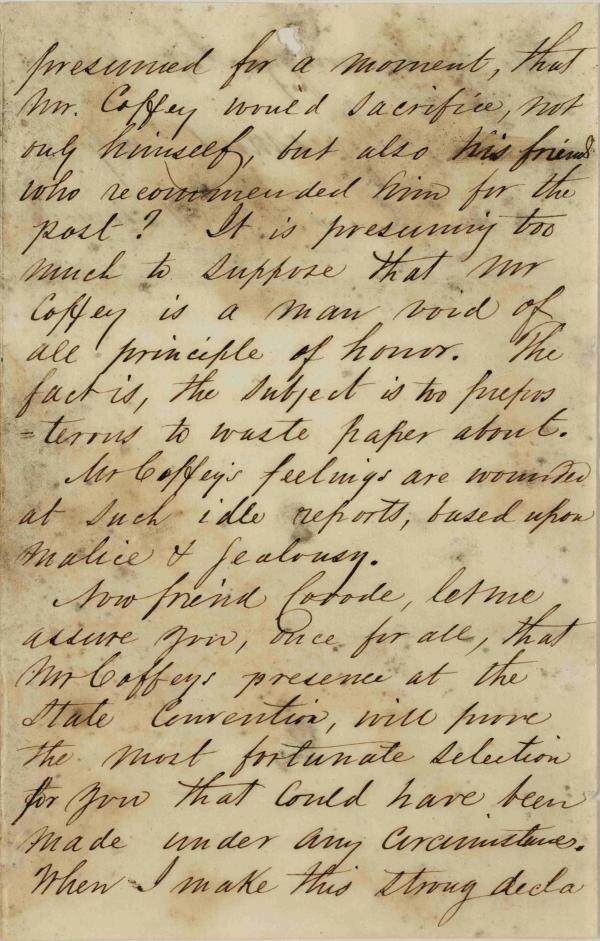 presumed for a moment, that
Mr. Coffey would sacrifice, not
only himself, but also his friend
who recommended him for the
post? It is presuming too
much to suppose that Mr
Coffey is a man void of
all principle of honor. The
fact is, the subject is too prepos
=terous to waste paper about.
Mr Coffey's feelings are wounded
at such idle reports, based upon
malice & Jealousy.
Now friend Covode, let me
assure you, once for all, that
Mr Coffeys presence at the
State Convention, will prove
the most fortunate selection
for you that could have been
made under any Circumstance.
When I make this strong decla